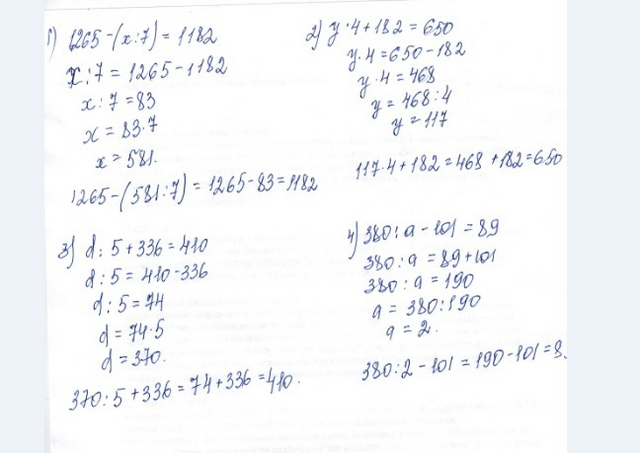 1) 1265-(x:7) = 1182
x:7 = 1265-1182
x:7 = 83
x = 83·7
x = 581.
1265-(581:7) = 1265-83 = 1182
2) y·4+182 = 650
y·4 = 650-182
y·4 = 468
y = 468:4
y = 117
117·4+182 = 468+182 = 650
3) d:5+336 = 410
d:5 = 410-336
d:5 = 74
d = 74·5
d = 370.
370:5+336 = 74+336 = 410.
4) 380:a-101 = 89
380:a = 89+101
380:a = 190
a = 380:190
a = 2.
380:2-101 = 190-101 = 8